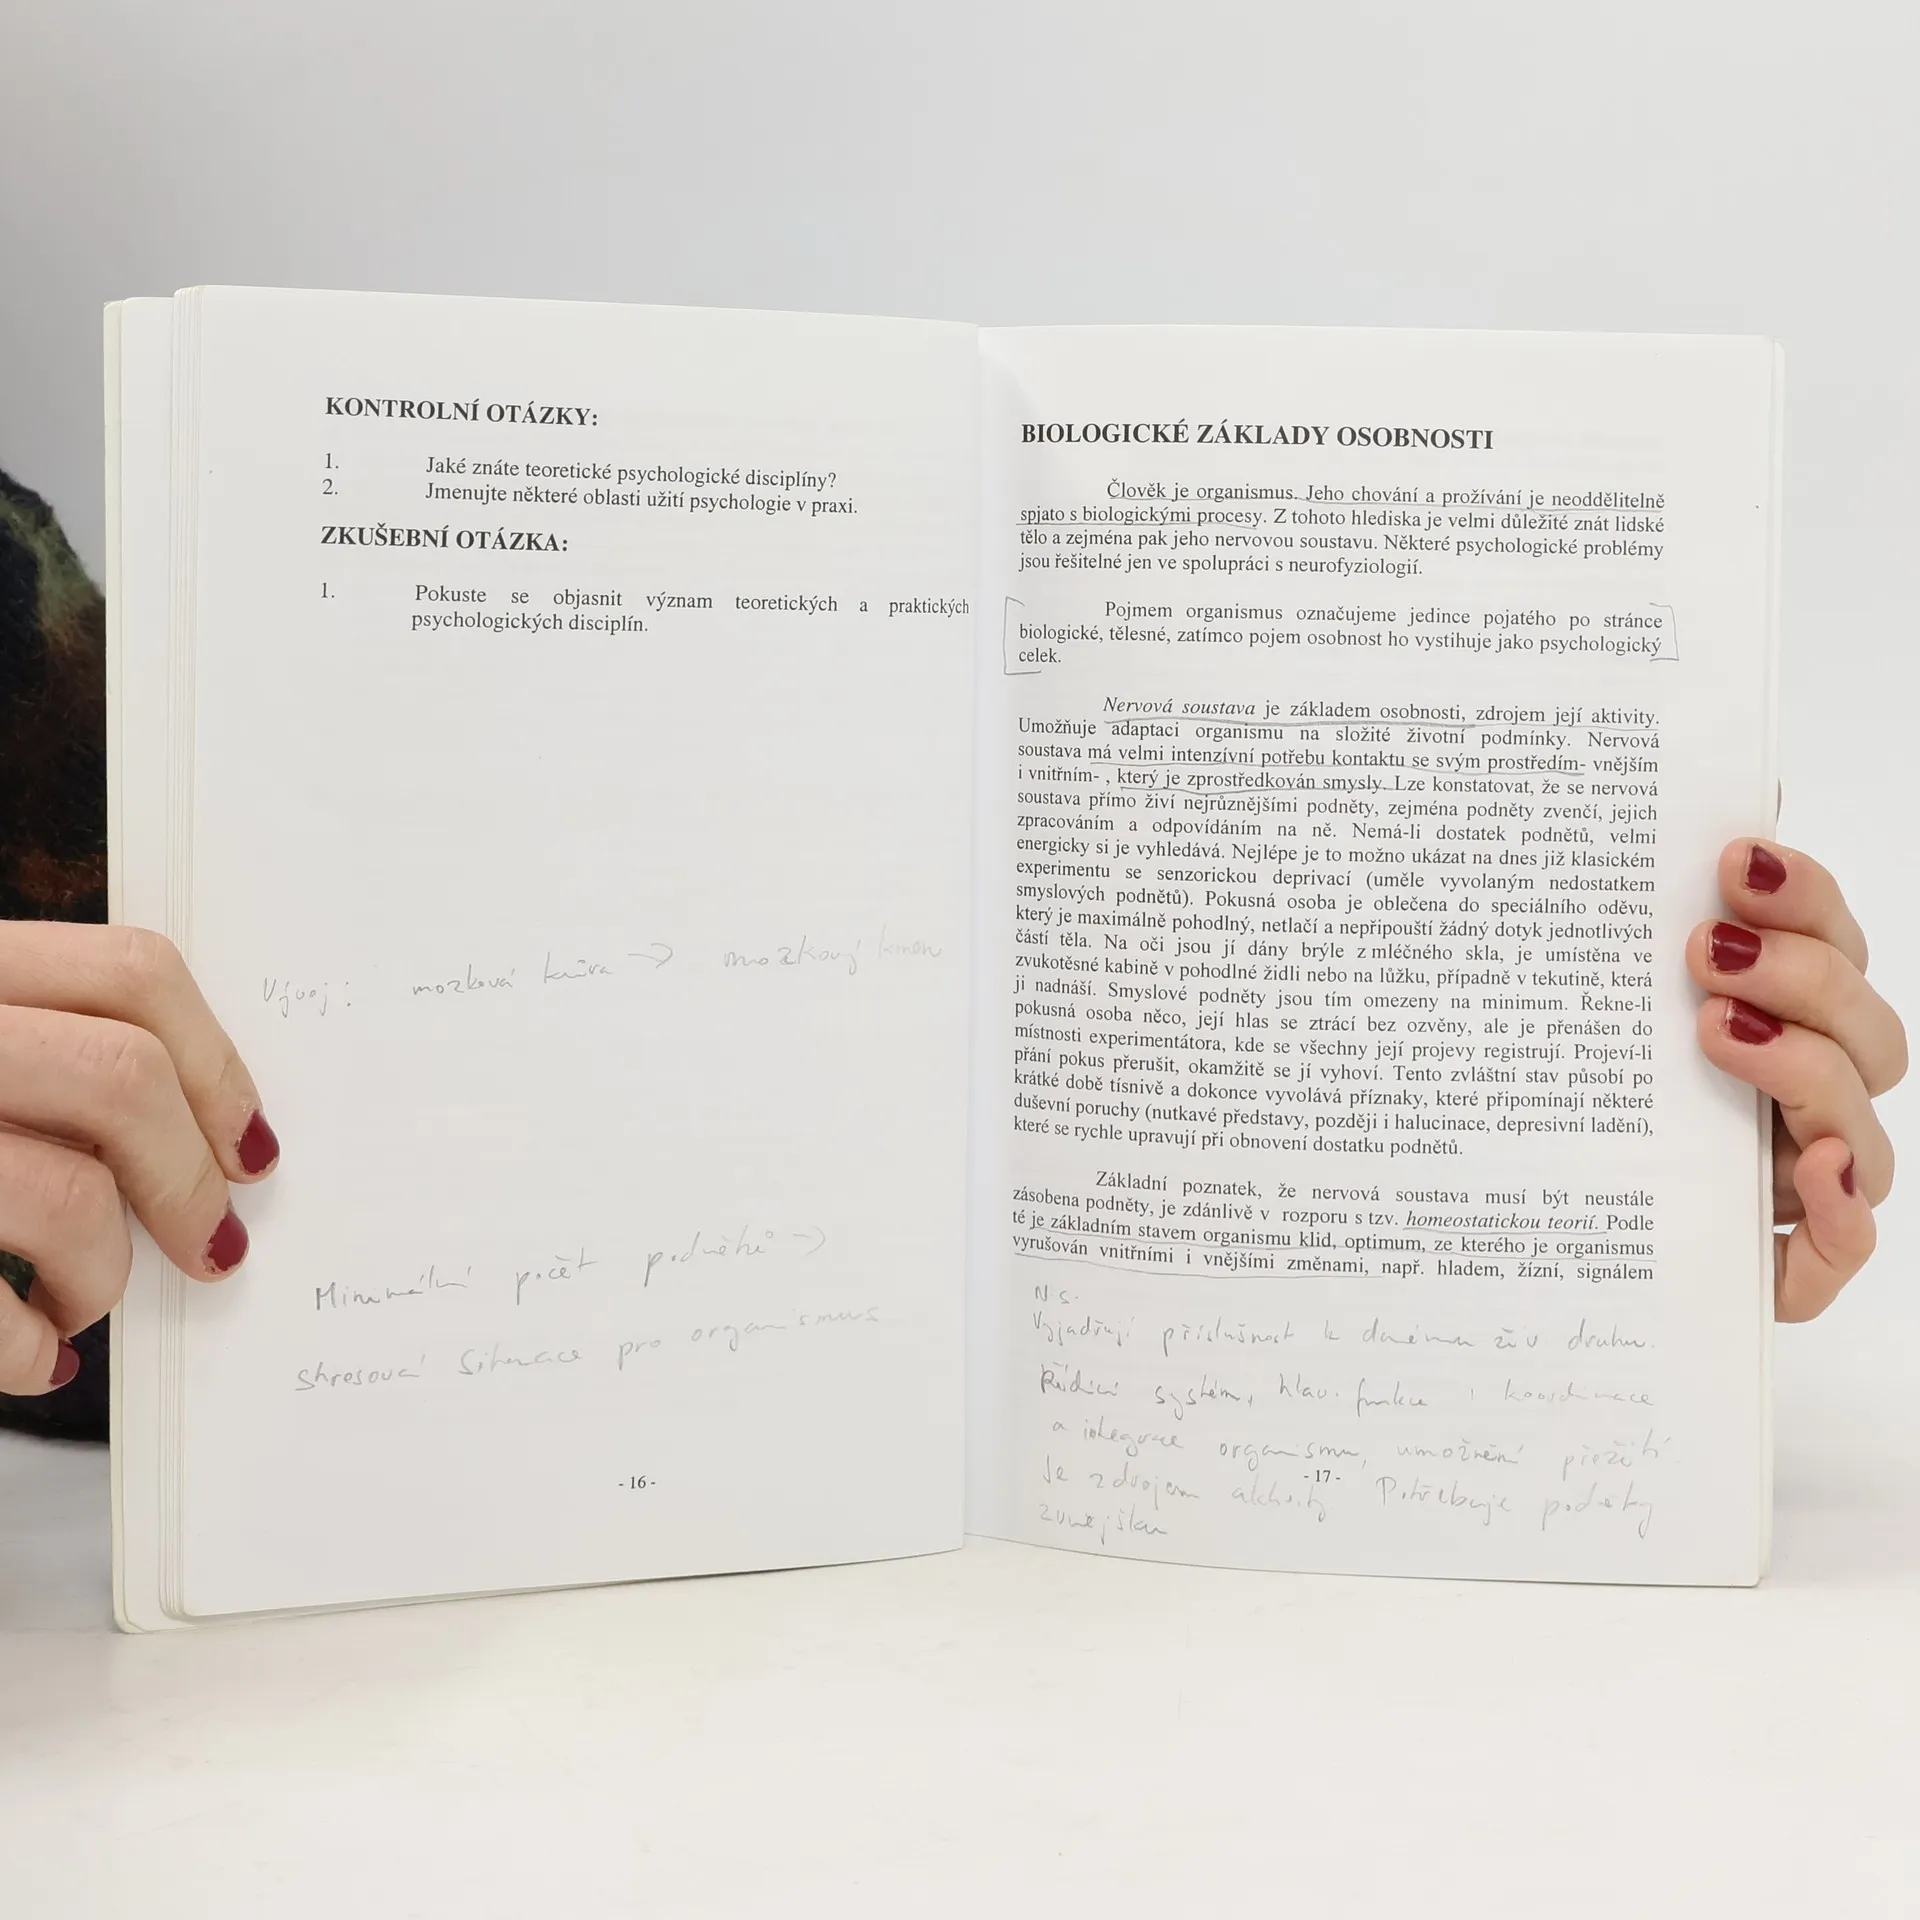 KONTROLNÍ OTÁZKY:
1. Jaké znáte teoretické psychologické disciplíny?
2. Jmenujte některé oblasti užití psychologie v praxi.
ZKUŠEBNÍ OTÁZKA:
1. Pokuste se objasnit význam teoretických a praktických
psychologických disciplín.
Vývoj: mozková kůra → mozkový kmen
Minimální počet podnětů →
stresová situace pro organismus
- 16 -
BIOLOGICKÉ ZÁKLADY OSOBNOSTI
Člověk je organismus. Jeho chování a prožívání je neoddělitelně
spjato s biologickými procesy. Z tohoto hlediska je velmi důležité znát lidské
tělo a zejména pak jeho nervovou soustavu. Některé psychologické problémy
jsou řešitelné jen ve spolupráci s neurofyziologií.
Pojmem organismus označujeme jedince pojatého po stránce
biologické, tělesné, zatímco pojem osobnost ho vystihuje jako psychologický
celek.
Nervová soustava je základem osobnosti, zdrojem její aktivity.
Umožňuje adaptaci organismu na složité životní podmínky. Nervová
soustava má velmi intenzívní potřebu kontaktu se svým prostředím- vnějším
i vnitřním- , který je zprostředkován smysly. Lze konstatovat, že se nervová
soustava přímo živí nejrůznějšími podněty, zejména podněty zvenčí, jejich
zpracováním a odpovídáním na ně. Nemá-li dostatek podnětů, velmi
energicky si je vyhledává. Nejlépe je to možno ukázat na dnes již klasickém
experimentu se senzorickou deprivací (uměle vyvolaným nedostatkem
smyslových podnětů). Pokusná osoba je oblečena do speciálního oděvu,
který je maximálně pohodlný, netlačí a nepřipouští žádný dotyk jednotlivých
částí těla. Na oči jsou jí dány brýle z mléčného skla, je umístěna ve
zvukotěsné kabině v pohodlné židli nebo na lůžku, případně v tekutině, která
ji nadnáší. Smyslové podněty jsou tím omezeny na minimum. Řekne-li
pokusná osoba něco, její hlas se ztrácí bez ozvěny, ale je přenášen do
místnosti experimentátora, kde se všechny její projevy registrují. Projeví-li
přání pokus přerušit, okamžitě se jí vyhoví. Tento zvláštní stav působí po
krátké době tísnivě a dokonce vyvolává příznaky, které připomínají některé
duševní poruchy (nutkavé představy, později i halucinace, depresivní ladění),
které se rychle upravují při obnovení dostatku podnětů.
Základní poznatek, že nervová soustava musí být neustále
zásobena podněty, je zdánlivě v rozporu s tzv. homeostatickou teorií. Podle
té je základním stavem organismu klid, optimum, ze kterého je organismus
vyrušován vnitřními i vnějšími změnami, např. hladem, žízní, signálem
N.S.
Vyjadřují příslušnost k danému živ druhu.
Řídící systém, hlav. funkce koordinace
a integrace organismu, umožnění přežití
- 17 -
Je zdrojem aktivity Potřebuje podněty
zvnějšku